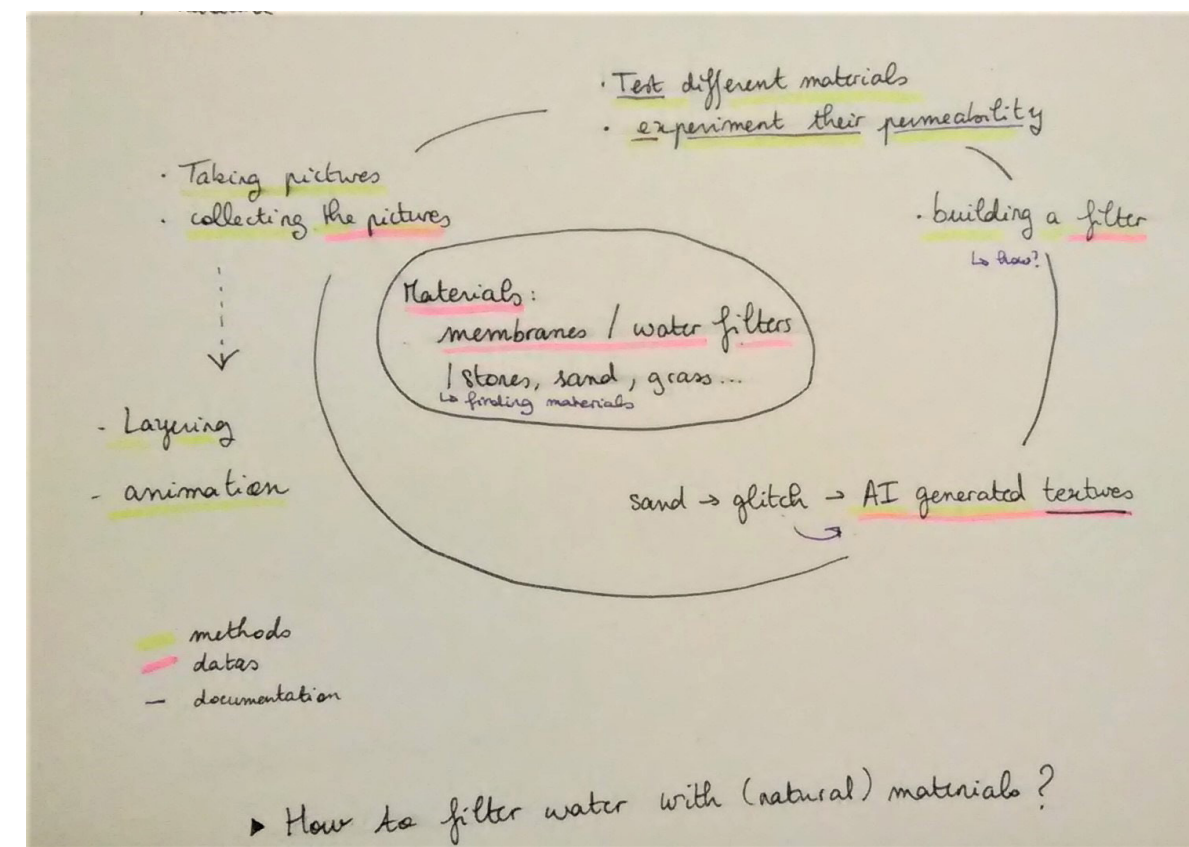 · Test different materials
· experiment their permeability
· Taking pictures
· collecting the pictures
· building a filter
↳ how?
Materials:
membranes / water filters
/ stones, sand, grass...
↳ finding materials
- Layering
- animation
sand → glitch → AI generated textures
methods
datas
— documentation
▶ How to filter water with (natural) materials?